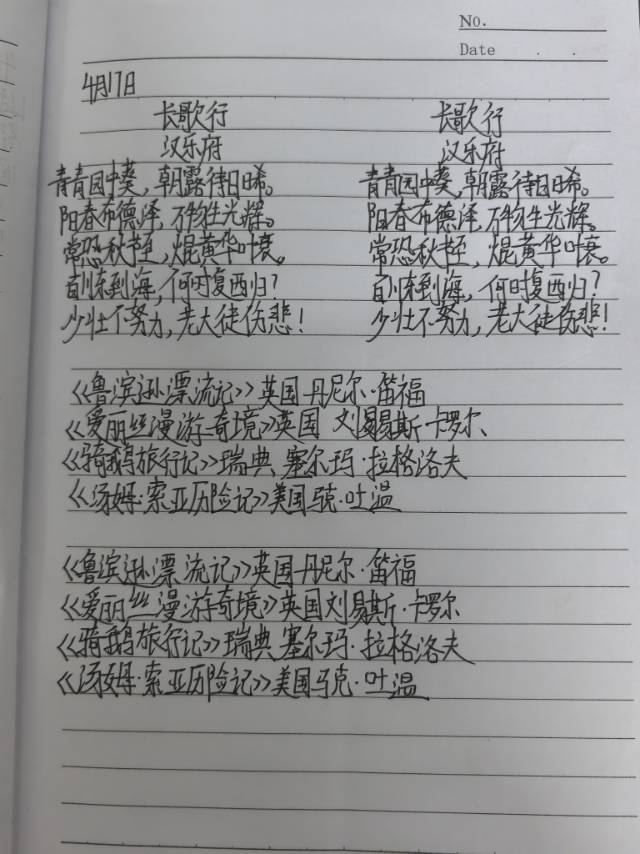 No.
Date . .
4月17日
长歌行 长歌行
汉乐府 汉乐府
青青园中葵,朝露待日晞。 青青园中葵,朝露待日晞。
阳春布德泽,万物生光辉。 阳春布德泽,万物生光辉。
常恐秋节至,焜黄华叶衰。 常恐秋节至,焜黄华叶衰。
百川东到海,何时复西归? 百川东到海,何时复西归?
少壮不努力,老大徒伤悲! 少壮不努力,老大徒伤悲!
《鲁滨逊漂流记》英国 丹尼尔·笛福
《爱丽丝漫游奇境》英国 刘易斯 卡罗尔、
《骑鹅旅行记》瑞典 塞尔玛·拉格洛夫
《汤姆·索亚历险记》美国 马克·吐温
《鲁滨逊漂流记》英国丹尼尔·笛福
《爱丽丝漫游奇境》英国刘易斯·卡罗尔
《骑鹅旅行记》瑞典 塞尔玛·拉格洛夫
《汤姆·索亚历险记》美国马克·吐温